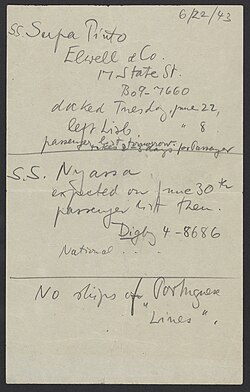 6/22/43
SS Serpa Pinto
Elwell & Co.
17 State St.
Bo9-7660
docked Tuesday, June 22,
left Lisb. " 8
passenger list tomorrow.
S.S. Nyassa
expected on June 30th
passenger list then.
Digby 4-8686
National ...
No ships of Portuguese
"Lines".